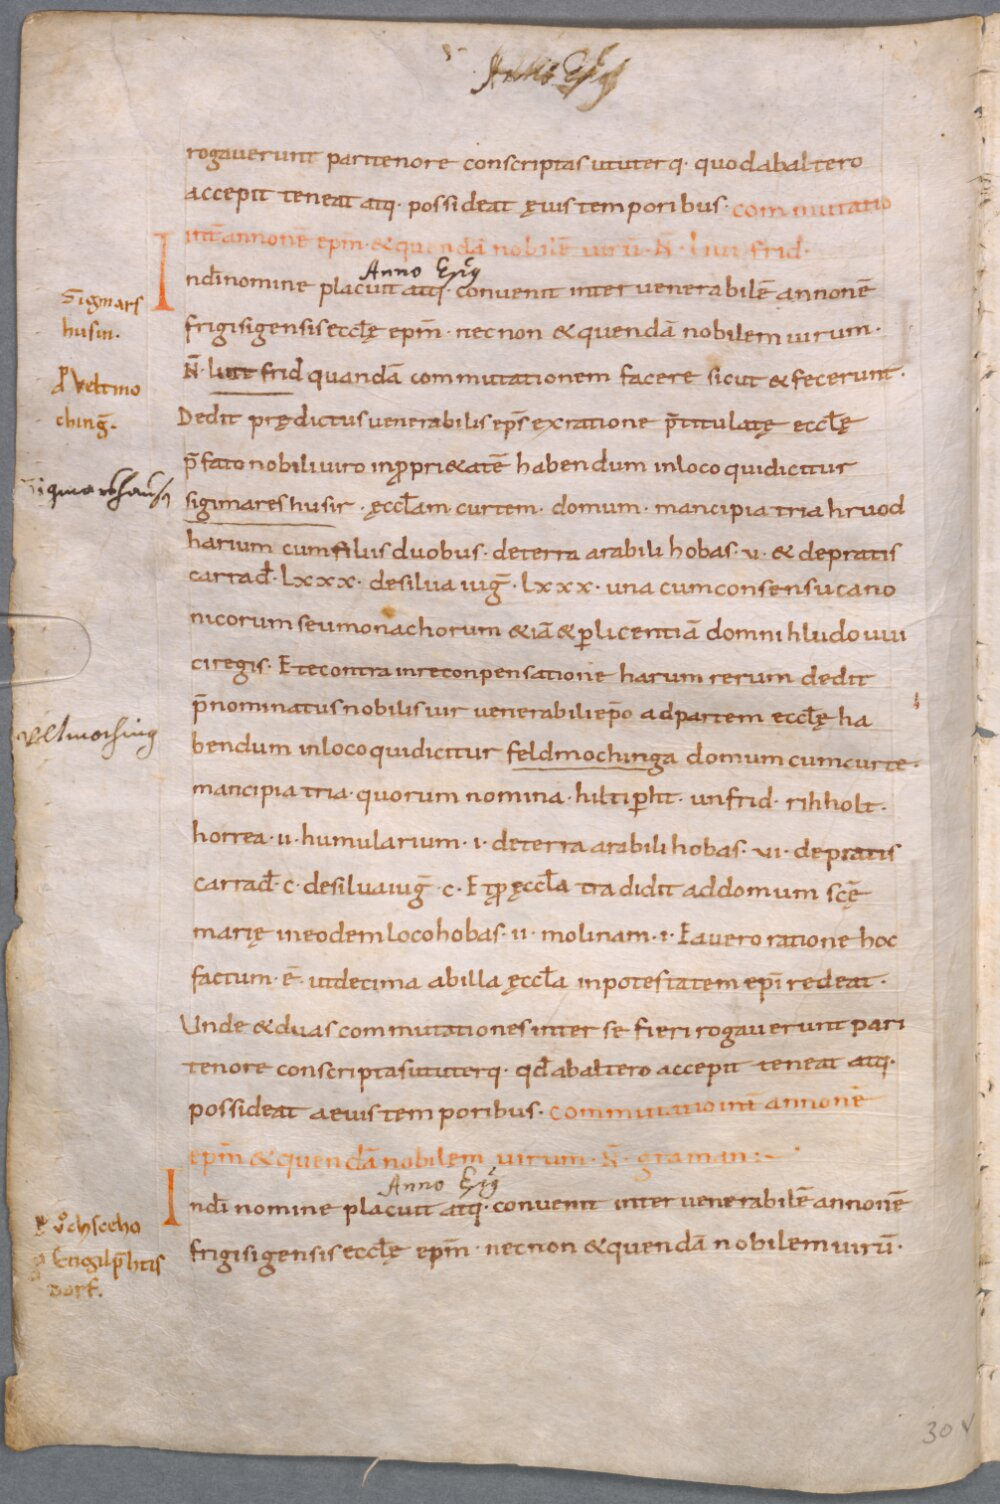 Anno Epõ
rogauerunt paritenore conscriptas ututerq· quodabaltero
accepit teneat atq· possideat ęuis temporibus· commutatio
int̄ annonē ep̄m· &quendā nobilē uirū· N̄· liutfrid·
Anno Epõ
Indinomine placuit atq· conuenit inter uenerabilē annonē
Sigmars
husin·
frigisigensis eccłę ep̄m· necnon &quendā nobilem uirum·
N̄· liutfrid quandā commutationem facere sicut &fecerunt·
Veltmo
chinḡ·
Dedit prędictus uenerabilis ep̄s exratione p̄titulatę eccłę
p̄fato nobiliuiro inpropri&atē habendum inloco quidicitur
Sigmarshausn
sigimareshusir· ęccłam· curtem· domum· mancipia tria hruod
harium cumfiliis duobus· deterra arabili hobas· u· & depratis
carrad̄· lxxx· desilua iuḡ· lxxx· una cumconsensu cano
nicorum seu monachorum &iā &plicentiā domni hludouui
ciregis· Etecontra inreconpensatione harum rerum dedit
p̄nominatus nobilis uir uenerabili ep̄o adpartem eccłę ha
Veltmoching
bendum inloco quidicitur feldmochinga domum cumcurte·
mancipia tria· quorum nomina· hiltip̄ht· unfrid· rihholt·
horrea· ii· humularium· i· deterra arabili hobas· ui· depratis
carrad̄· c· desilua iuḡ· c· Et p̄ ęccła tradidit addomum scę̄
marię ineodem loco hobas· ii· molinam· i· Eauero ratione hoc
factum· ē· utdecima abilla ęccła inpotestatem ep̄i redeat·
Unde &duas commutationes inter se fieri rogauerunt pari
tenore conscriptas ututerq· qd̄ abaltero accepit teneat atq·
possideat aeuis temporibus· commutatio int̄ annonē
ep̄m &quendā nobilem uirum· N̄· graman:~
Anno Epõ
Indi nomine placuit atq· conuenit inter uenerabilē annonē
vͦchsceho
Engilp̄htis
dorf.
frigisigensis eccłę ep̄m· necnon &quendā nobilem uirū·
30 v